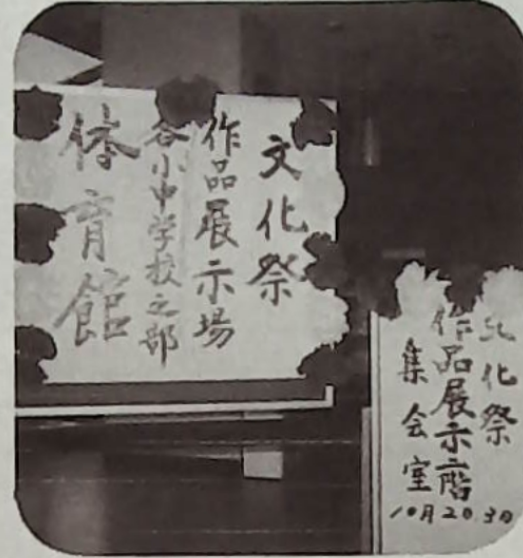 文化祭
作品展示場
各小中学校之部
体育館
文化祭
作品展示二階
集会室
10月2日3日